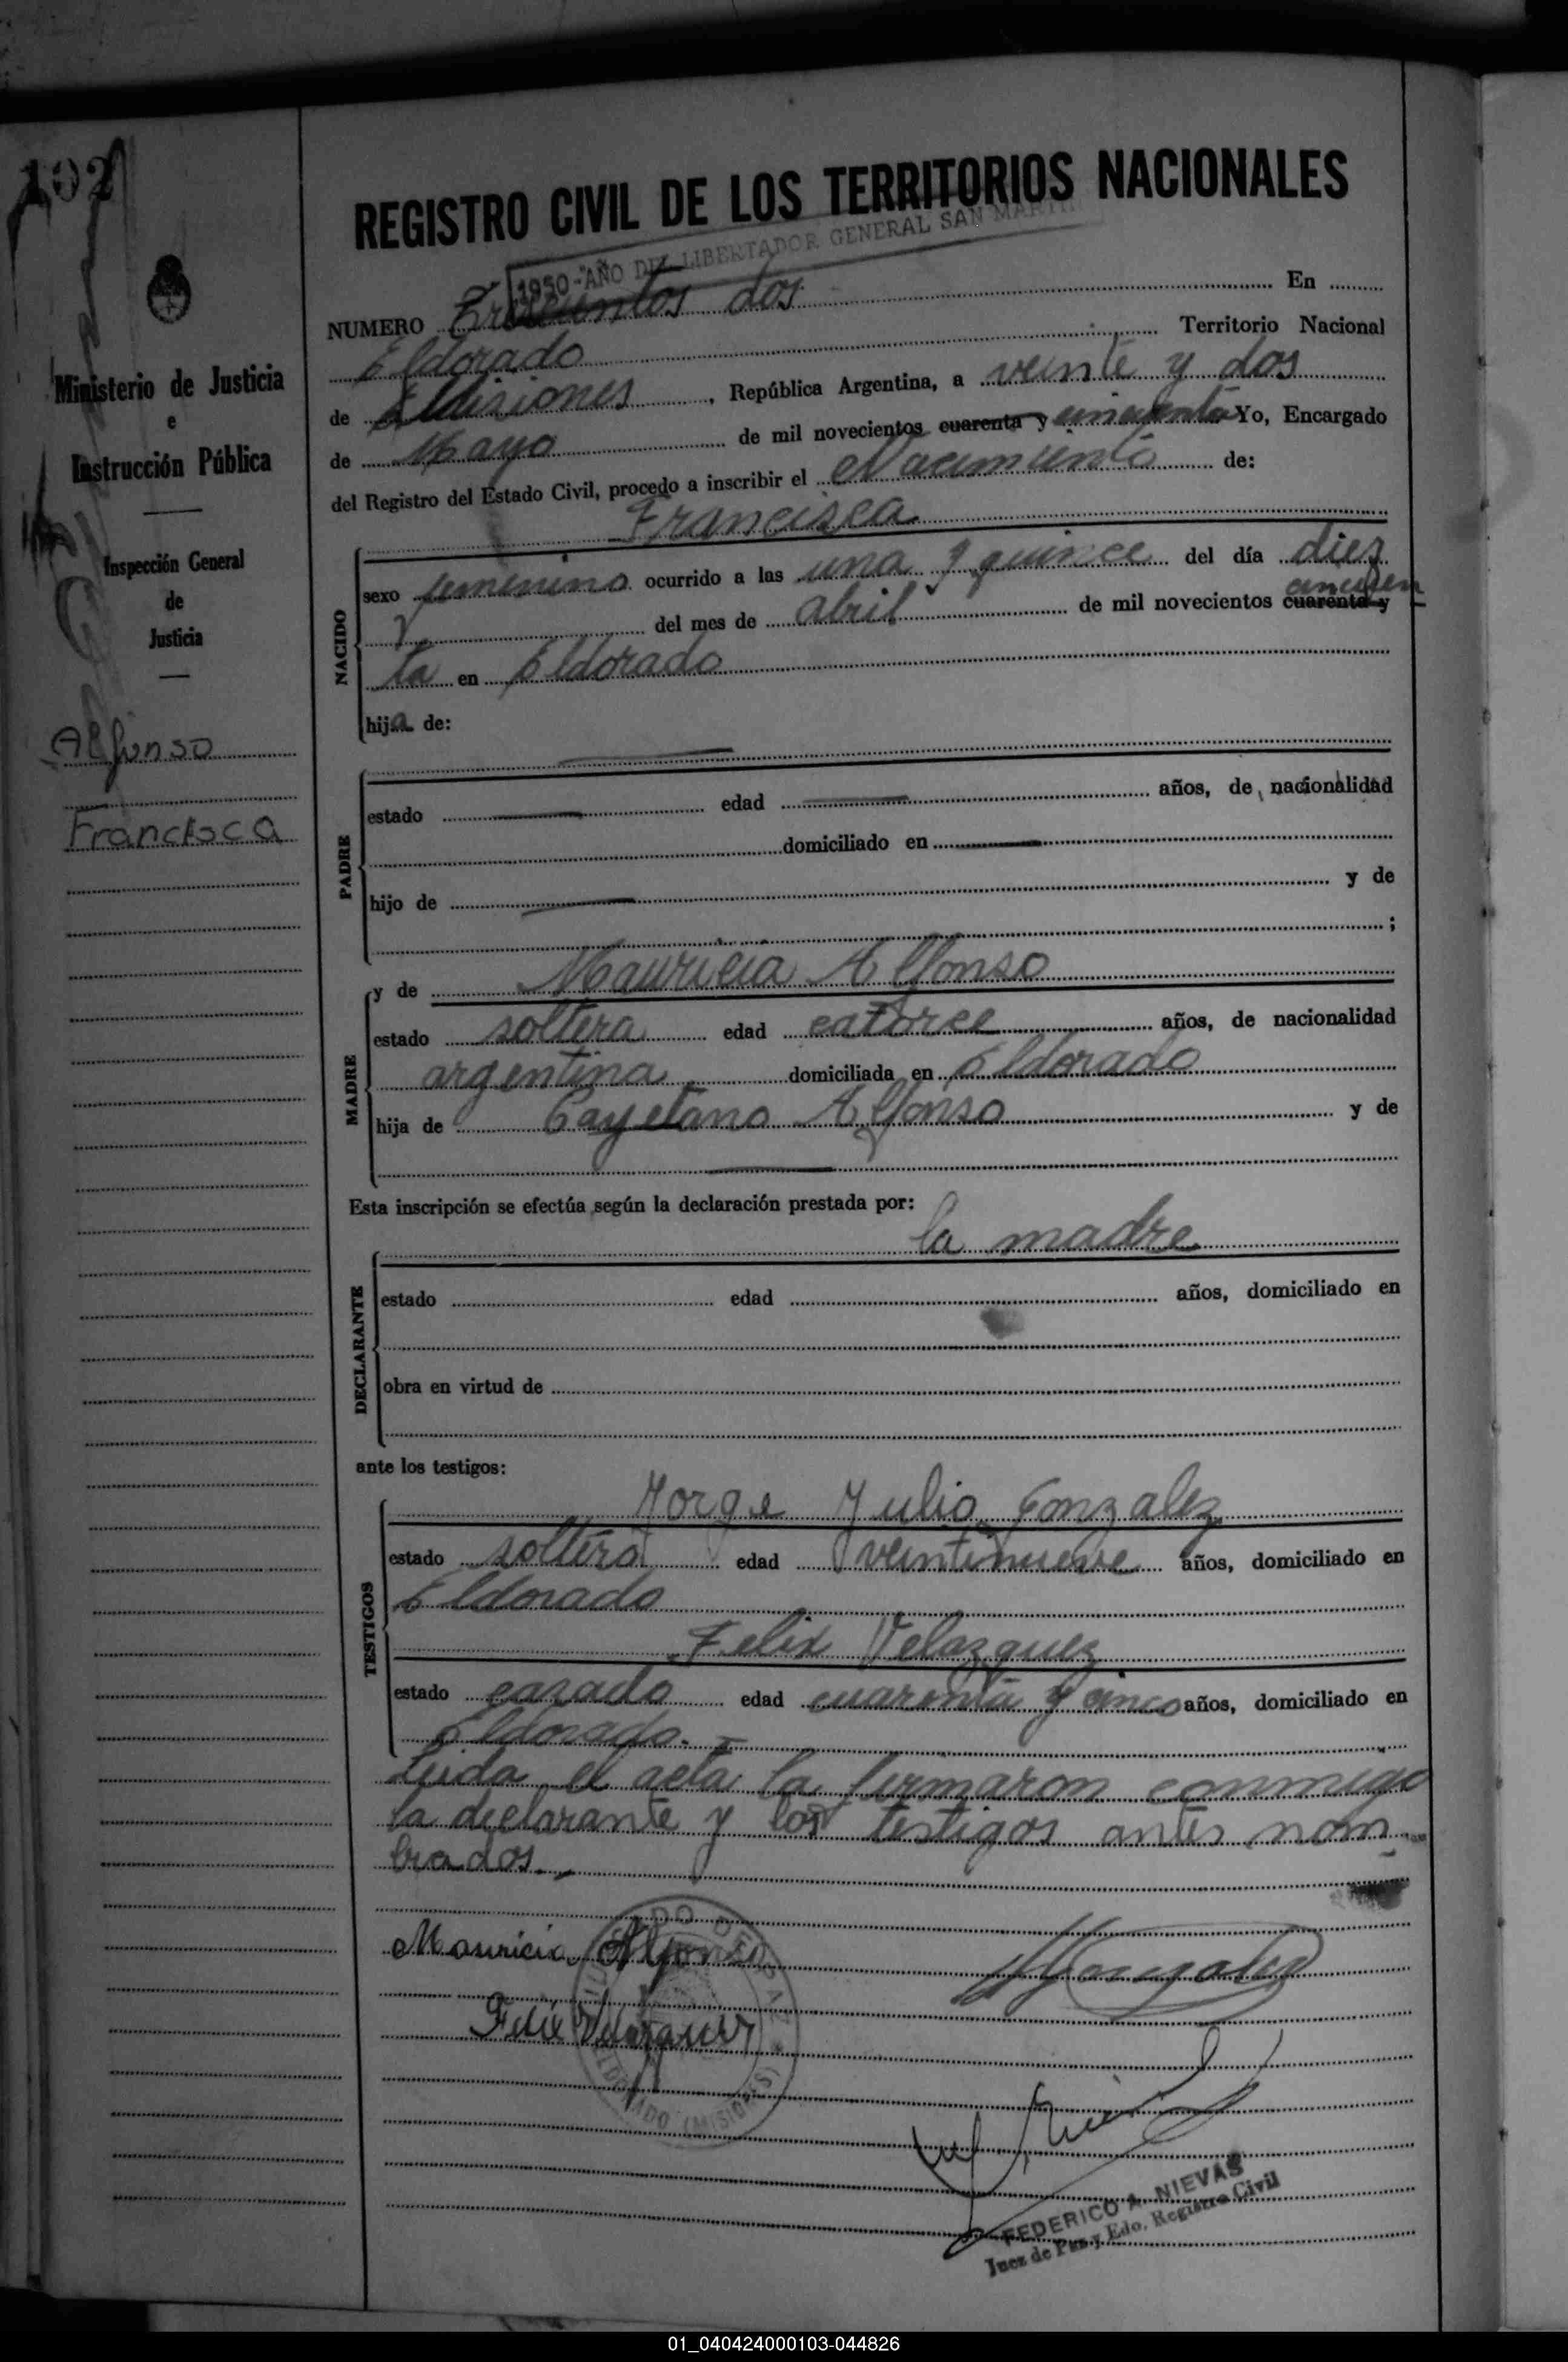 102
REGISTRO CIVIL DE LOS TERRITORIOS NACIONALES
1950 - "AÑO DEL LIBERTADOR GENERAL SAN MARTIN
NUMERO Trescientos dos En
Eldorado Territorio Nacional
de Misiones, República Argentina, a veinte y dos
de Mayo de mil novecientos cuarenta y cincuenta Yo, Encargado
del Registro del Estado Civil, procedo a inscribir el Nacimiento de:
Ministerio de Justicia
e
Instrucción Pública
Inspección General
de
Justicia
Alfonso
Francisca
NACIDO
Francisca
sexo femenino ocurrido a las una y quince del día diez
y del mes de abril de mil novecientos cuarenta y cincuen
ta en Eldorado
hija de:
PADRE
estado edad años, de nacionalidad
domiciliado en
hijo de y de
;
MADRE
y de Mauricia Alfonso
estado soltera edad catorce años, de nacionalidad
argentina domiciliada en Eldorado
hija de Cayetano Alfonso y de
Esta inscripción se efectúa según la declaración prestada por:
la madre
DECLARANTE
estado edad años, domiciliado en
obra en virtud de
ante los testigos:
TESTIGOS
Jorge Julio Gonzalez
estado soltero edad veintinueve años, domiciliado en
Eldorado
Felix Velazquez
estado casado edad cuarenta y cinco años, domiciliado en
Eldorado.
Leida el acta la firmaron conmigo
la declarante y los testigos antes nom
brados.
Mauricia Alfonso
Gonzalez
Felix Velazquez
ELDORADO (MISIONES)
FEDERICO A. NIEVAS
Juez de Paz y Edo. Registro Civil
01_040424000103-044826